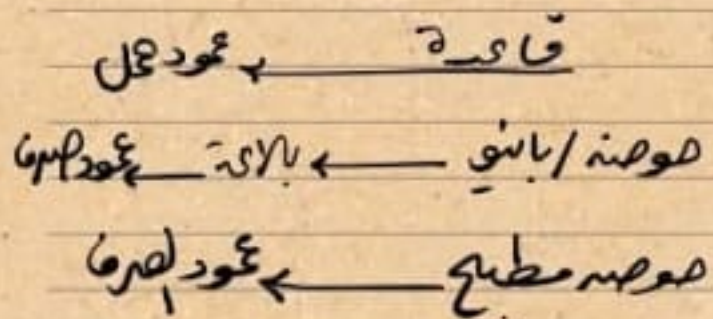 قاعدة ← عمود عمل
حوض / بانيو ← بلاعة ← عمود صرف
حوض مطبخ ← عمود الصرف